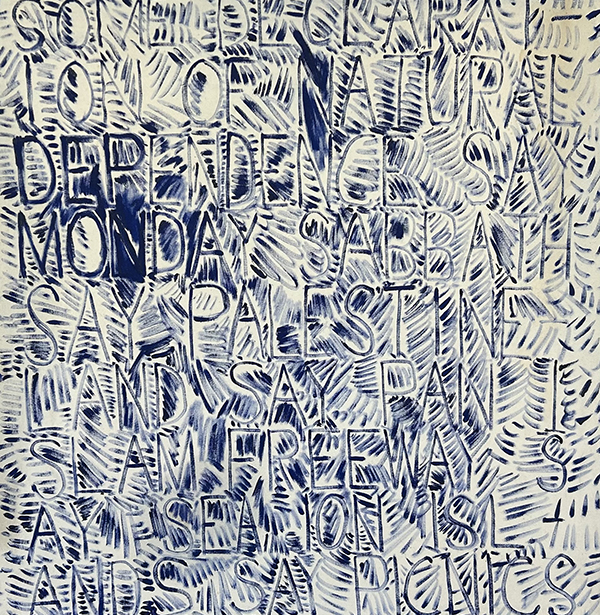 SOME DECLARA-
TION OF NATURAL
DEPENDENCE SAY
MONDAY SABBATH
SAY PALESTINE
LAND SAY PAN I-
SLAM FREEWAY S-
AY SEA ION ISL-
ANDS SAY PICNICS